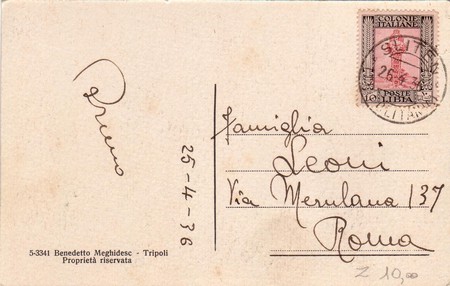 COLONIE
ITALIANE
POSTE
LIBIA
SLITEN
Bruno
25-4-36
Famiglia
Leoni
Via Merulana 137
Roma
5-3341 Benedetto Meghidesc - Tripoli
Proprietà riservata